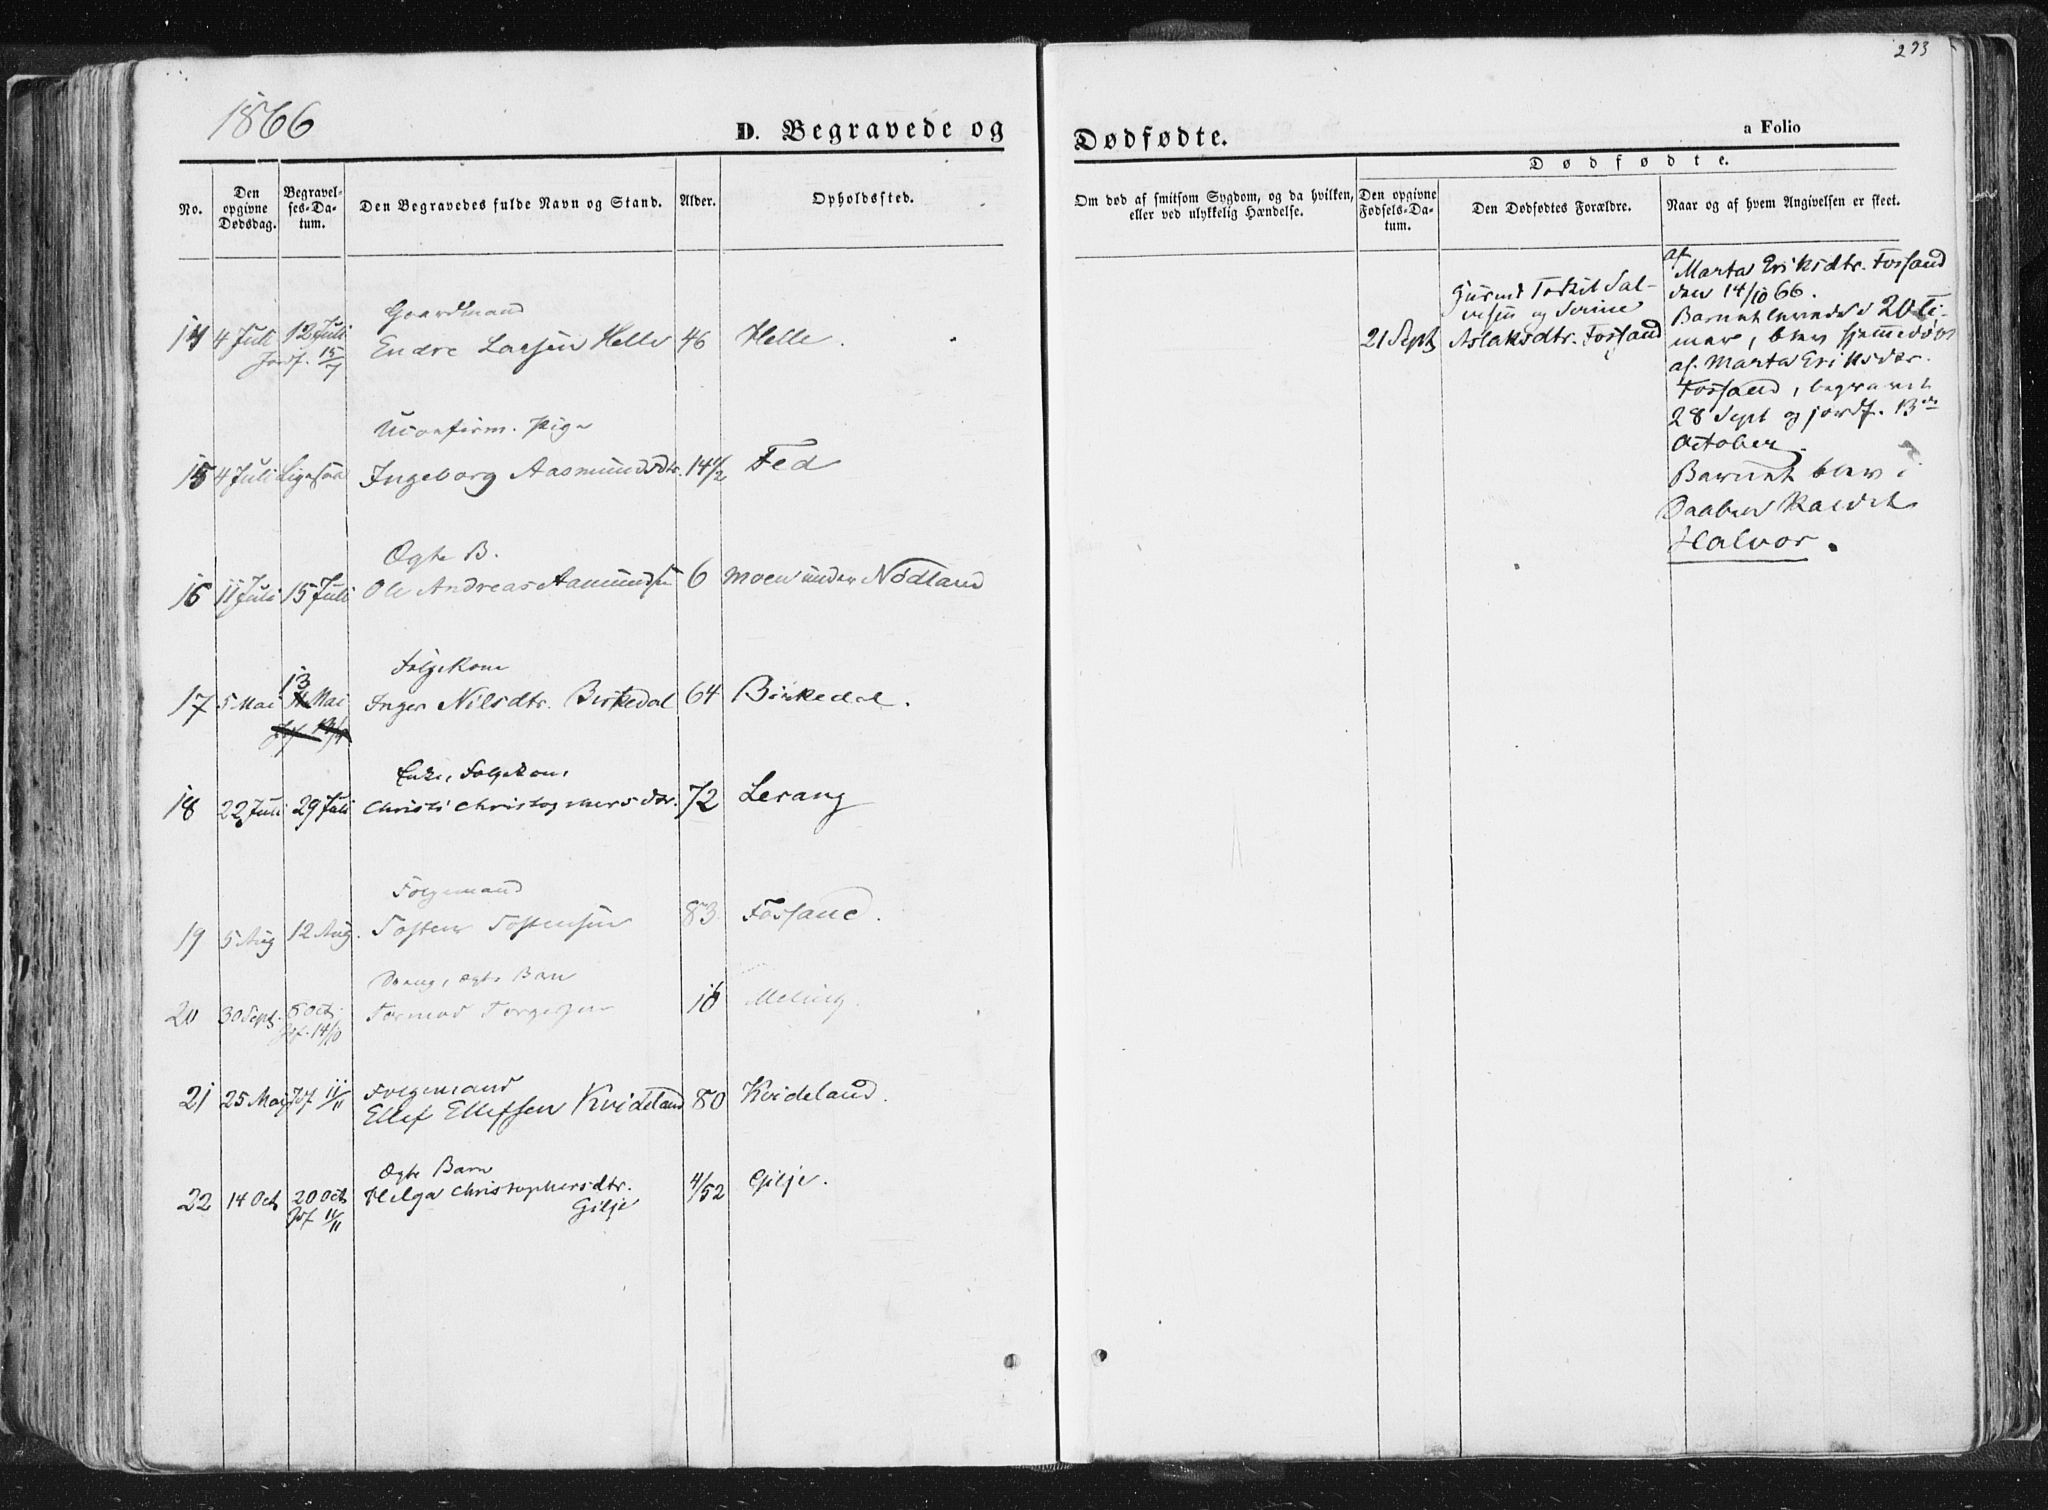 233
1866
D. Begravede og
Dødfødte.
a Folio
No.
Den opgivne Dødsdag.
Begravelses-Datum.
Den Begravedes fulde Navn og Stand.
Alder.
Opholdssted.
Om død af smitsom Sygdom, og da hvilken, eller ved ulykkelig Hændelse.
Dødfødte.
Den opgivne Fødsels-Datum.
Den Dødfødtes Forældre.
Naar og af hvem Angivelsen er skeet.
Gaardmand
14 4 Juli 12 Juli Endre Larsen Helle 46 Helle.
Jordf. 15/7
Uconfirm. Pige
15 4 Juli Ingeborg Aasmundsdtr. 14 1/2 Fed
Ægte B.
16 11 Juli 15 Juli Ole Andreas Aamundsen 6 Moen under Nødland
Følgekone
17 5 Mai 13 Mai Inger Nilsdtr. Birkedal 64 Birkedal.
Enke, Følgekone
18 22 Juli 29 Juli Christi Christophersdtr. 72 Lerang
Følgemand
19 5 Aug 12 Aug. Tosten Tostensen 83 Fossand.
Dreng, Ægte Barn
20 30 Sept. 8 Oct. Tormod Torgersen Meling.
Jf. 14/10
Følgemand
21 25 Mai Jf 11/11 Ellef Ellefsen Kvideland 80 Kvideland.
Ægte Barn
22 14 Oct 20 Oct Helga Christophersdtr. 4/52 Gilje.
Jf 11/11 Gilje
21 Sept
Gaardmd Torkil Sal-
vesen og Serine
Aslaksdtr. Fossand
af
Marta Eriksdtr. Fossand
den 14/10 66.
Barnet levede i 20 Ti-
mer, blev hjemmedøbt
af Marta Eriksdtr.
Fossand, begravet
28 Sept og jordf. 13de
October.
Barnet blev i
Daaben kaldet
Halvor.